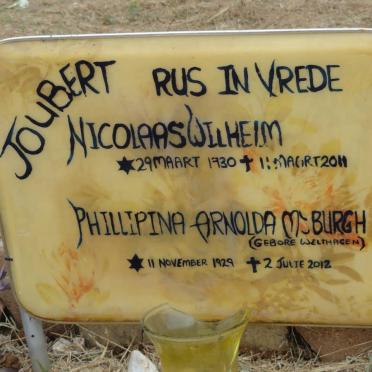 JOUBERT RUS IN VREDE
NICOLAAS WILHEIM
✡ 29 MAART 1930 ✝ 1 MAART 2011
PHILLIPINA ARNOLDA McBURGH
(GEBORE WELTHAGEN)
✡ 11 NOVEMBER 1929 ✝ 2 JULIE 2012